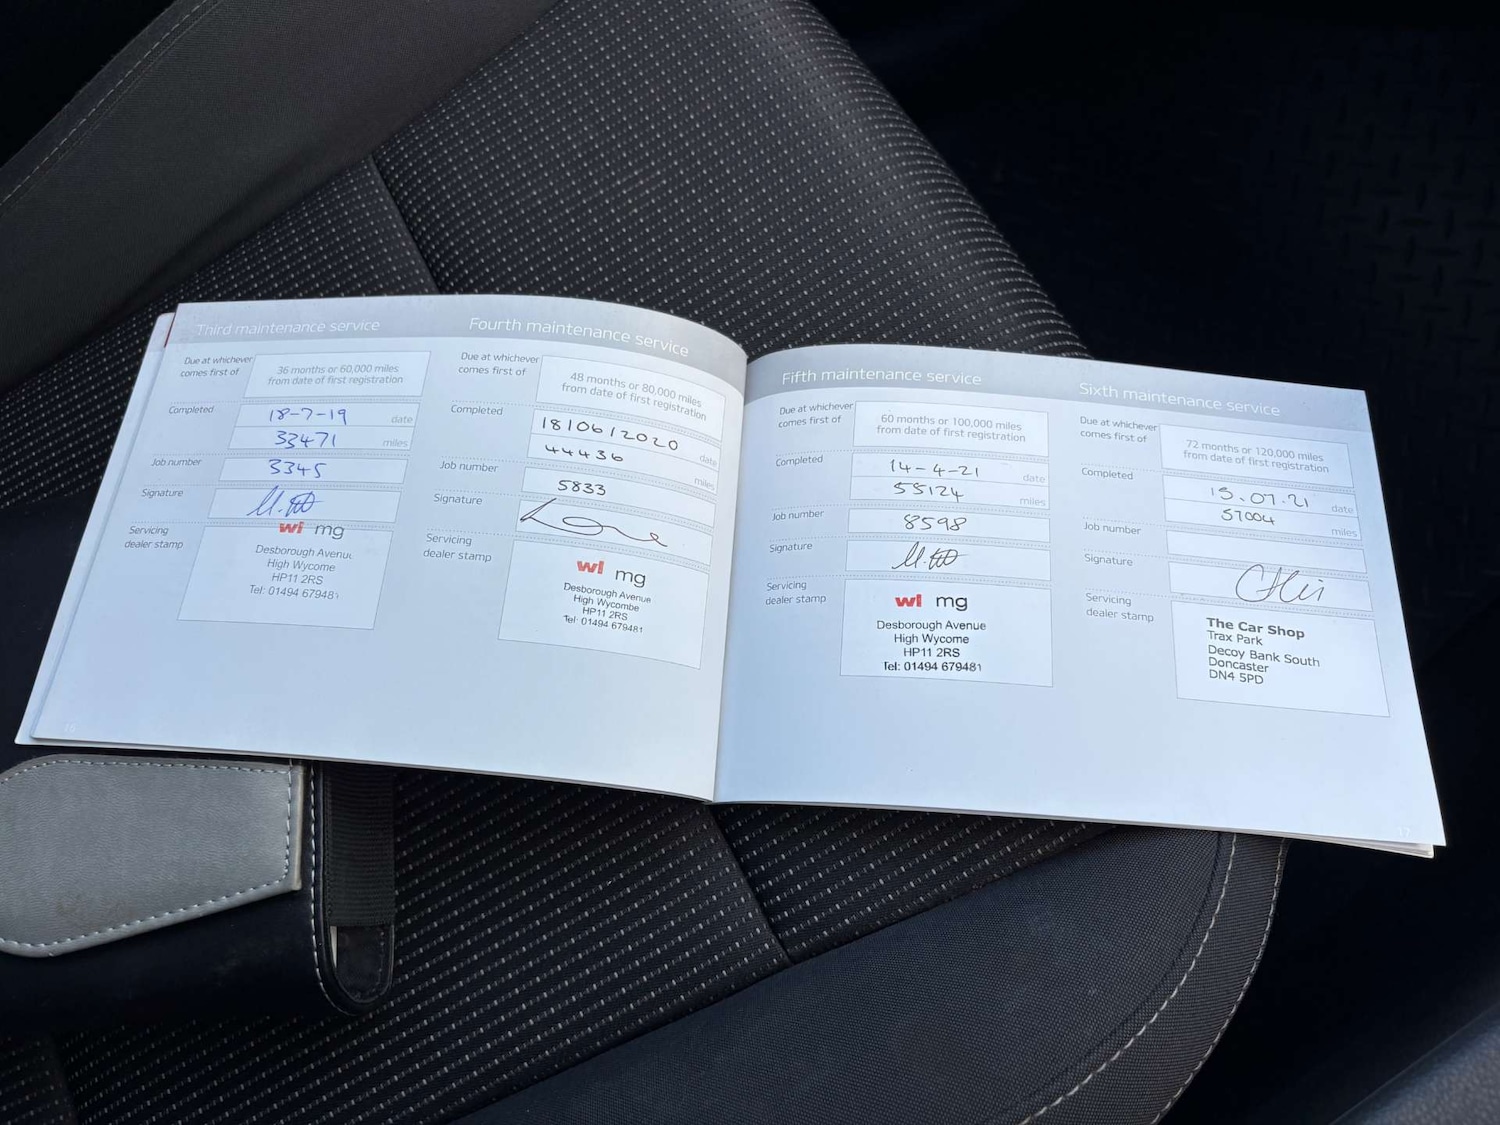 Third maintenance service
Due at whichever
comes first of
36 months or 60,000 miles
from date of first registration
Completed
18-7-19
date
33471
miles
Job number
3345
Signature
Servicing
dealer stamp
wj mg
Desborough Avenue
High Wycome
HP11 2RS
Tel: 01494 679481
Fourth maintenance service
Due at whichever
comes first of
48 months or 80,000 miles
from date of first registration
Completed
18/06/2020
date
44436
miles
Job number
5833
Signature
Servicing
dealer stamp
wj mg
Desborough Avenue
High Wycombe
HP11 2RS
Tel: 01494 679481
Fifth maintenance service
Due at whichever
comes first of
60 months or 100,000 miles
from date of first registration
Completed
14-4-21
date
55124
miles
Job number
8598
Signature
Servicing
dealer stamp
wj mg
Desborough Avenue
High Wycome
HP11 2RS
Tel: 01494 679481
Sixth maintenance service
Due at whichever
comes first of
72 months or 120,000 miles
from date of first registration
Completed
15.07.21
date
57004
miles
Job number
Signature
Servicing
dealer stamp
The Car Shop
Trax Park
Decoy Bank South
Doncaster
DN4 5PD
16
17